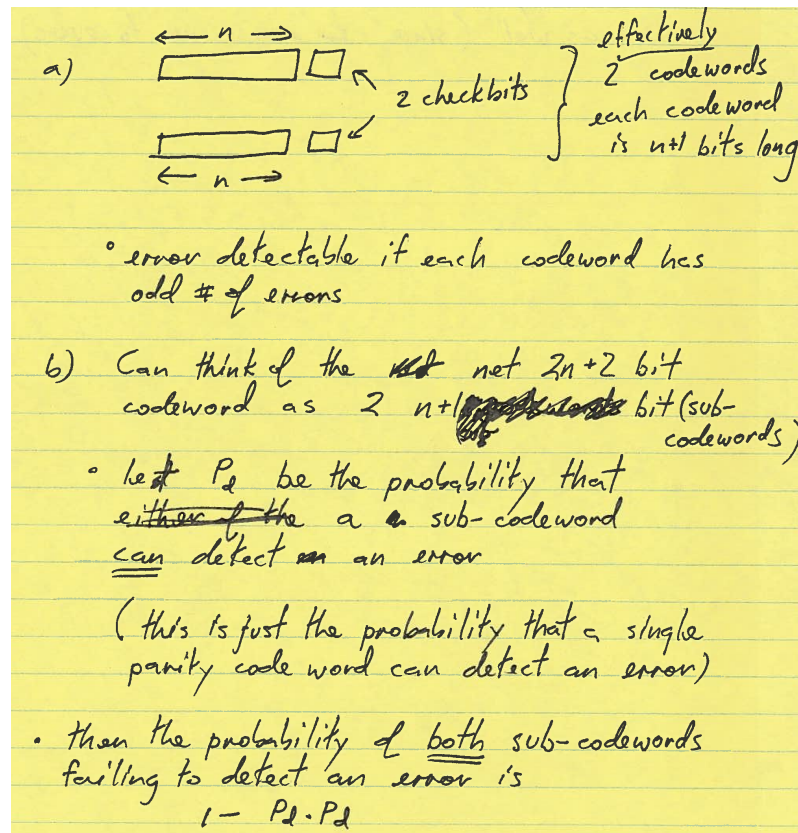 a)
← n →
2 checkbits
← n →
effectively
2 codewords
each codeword
is n+1 bits long
• error detectable if each codeword has
odd # of errors
b) Can think of the net 2n+2 bit
codeword as 2 n+1 bit (sub-
codewords)
• let Pd be the probability that
either of the a sub-codeword
can detect an error
(this is just the probability that a single
parity code word can detect an error)
• then the probability of both sub-codewords
failing to detect an error is
1 - Pd · Pd